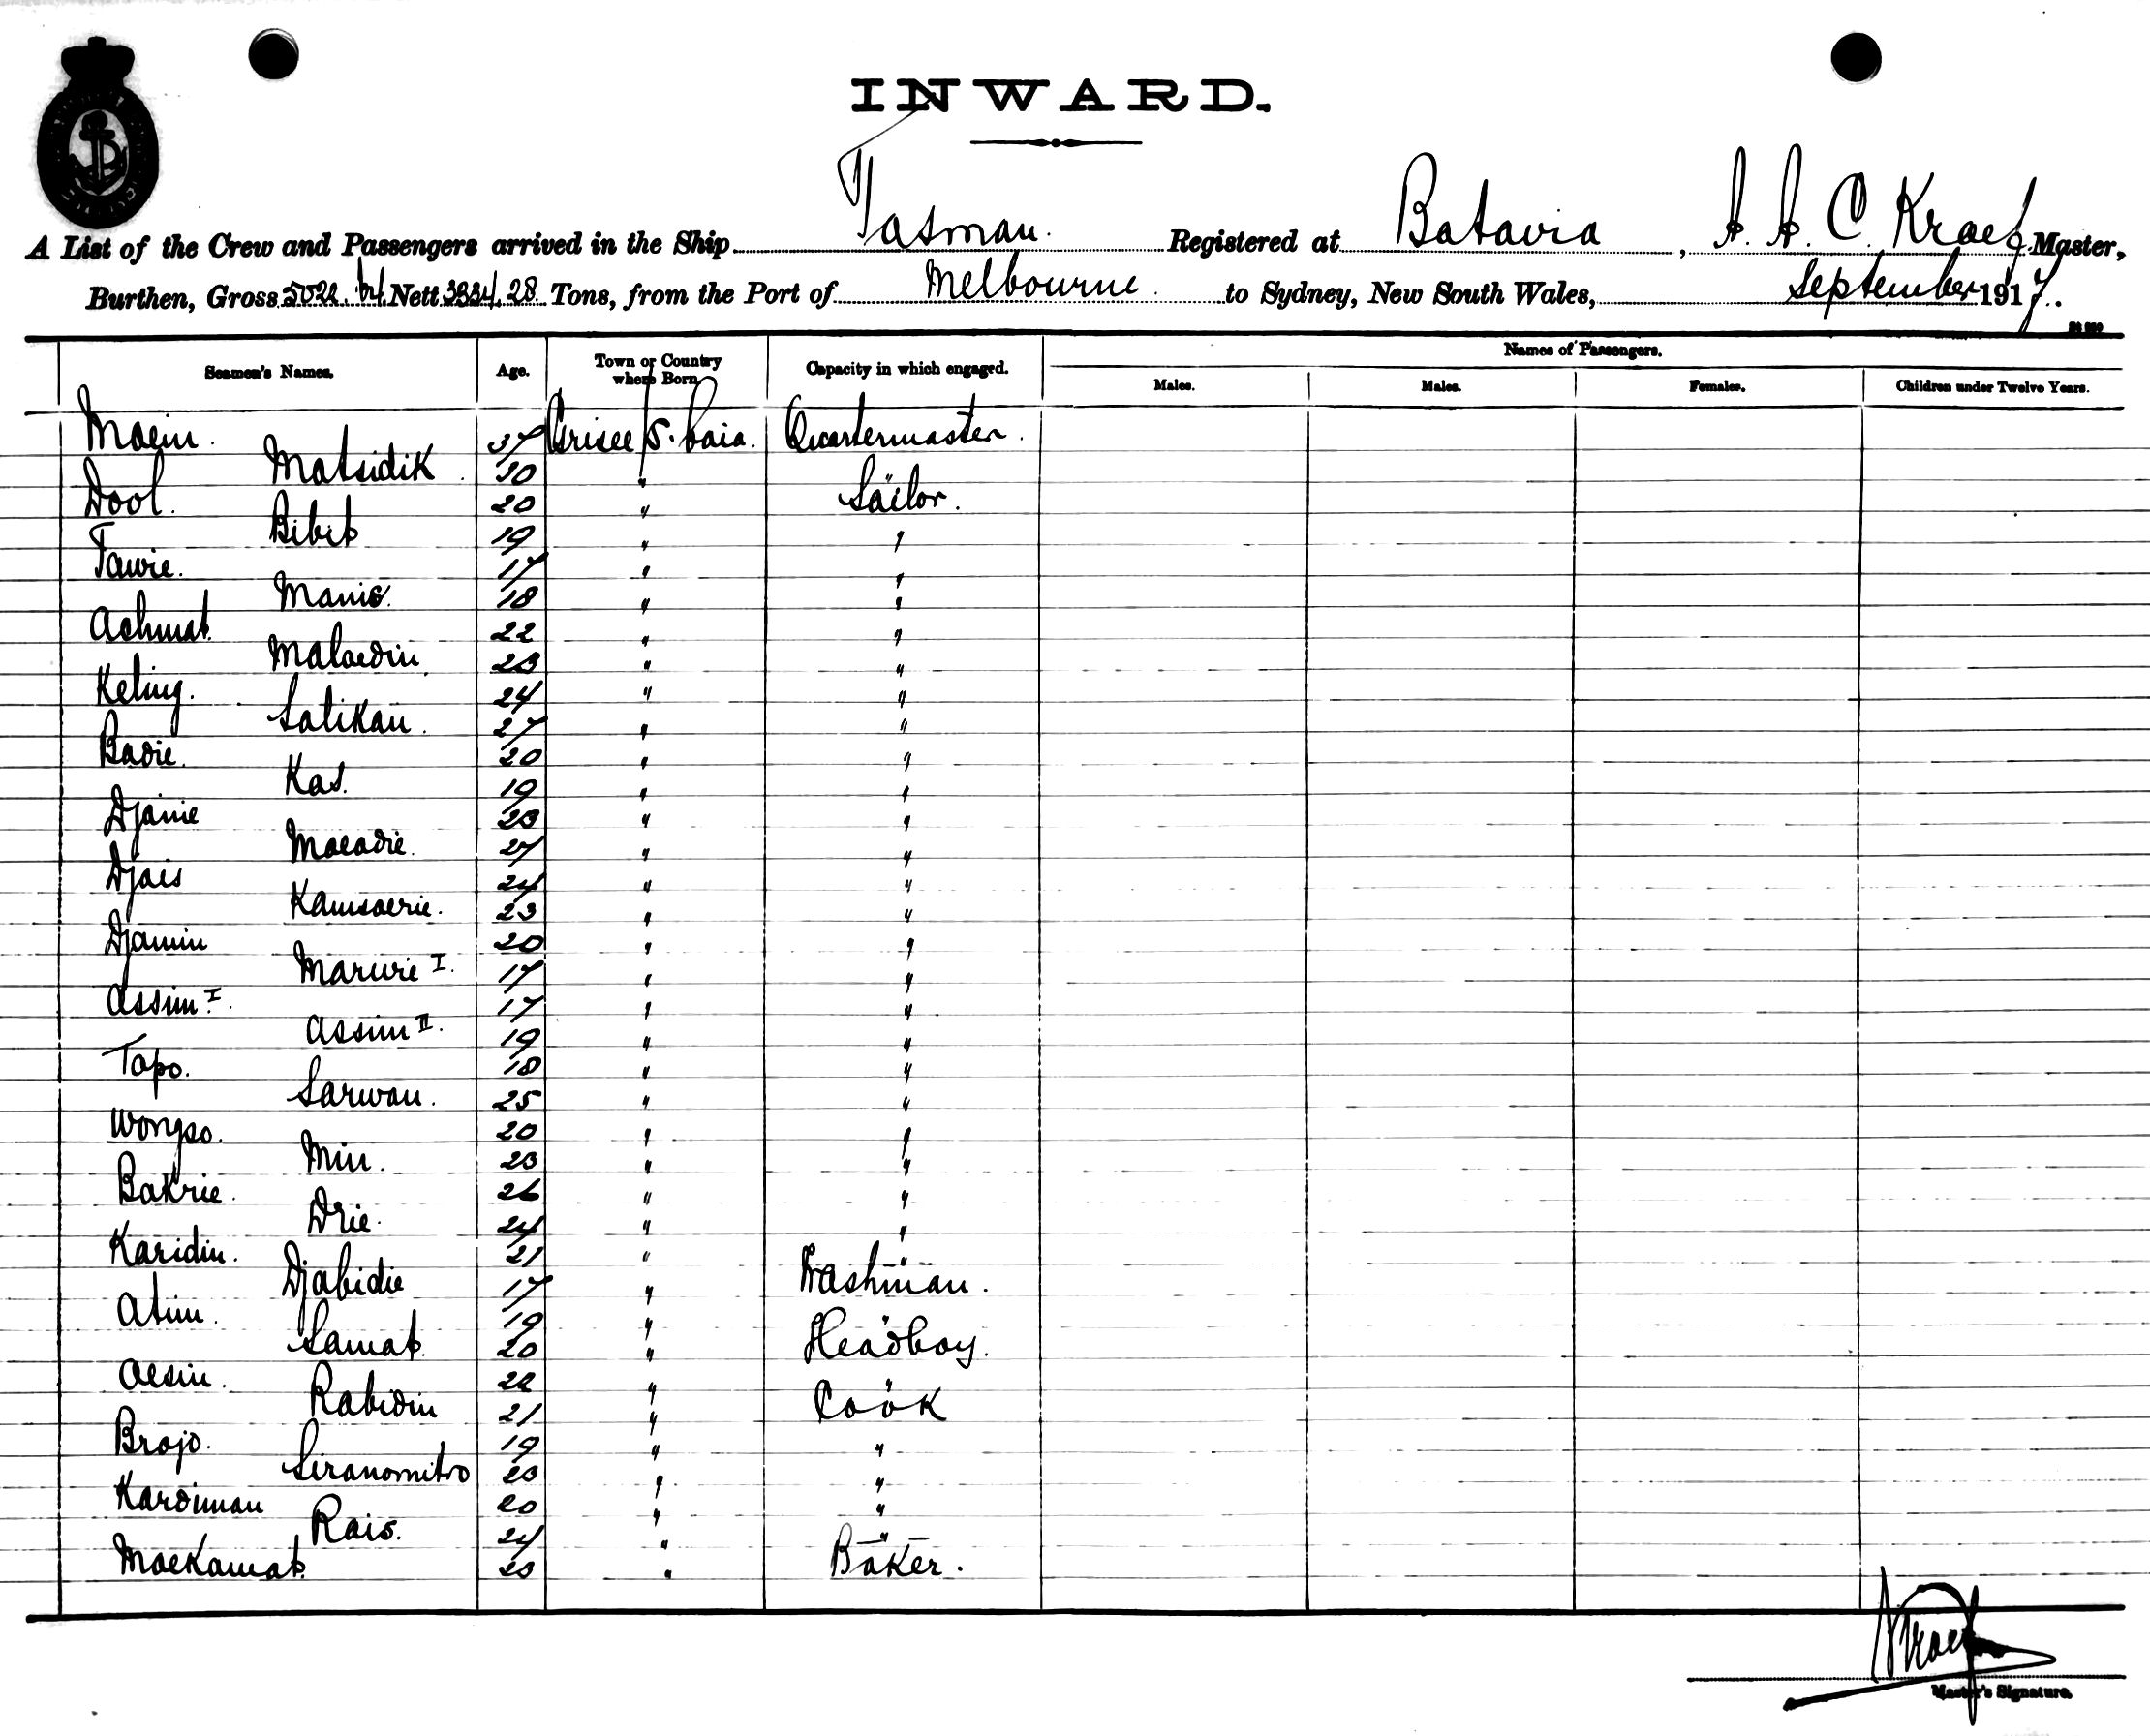 INWARD.
A List of the Crew and Passengers arrived in the Ship Tasman. Registered at Batavia, A. A. C. Kraef Master,
Burthen, Gross 5022. Nett 3334.28 Tons, from the Port of Melbourne to Sydney, New South Wales, September 1917.
Names of Passengers.
Seamen's Names. Age. Town or Country where Born Capacity in which engaged. Males. Males. Females. Children under Twelve Years.
Moein. 37 Grisee / S. baia. Quartermaster.
Matsidik. 30 "
Dool. 20 " Sailor.
Bibit 19 " "
Tawie. 17 " "
Manis. 18 " "
Achmat. 22 " "
Malaedin. 23 " "
Keling. 24 " "
Salikan. 27 " "
Badie. 20 " "
Kas. 19 " "
Djanie 23 " "
Moeadie. 27 " "
Djais 24 " "
Kamsoerie. 23 " "
Djamin 20 " "
Marwie I. 17 " "
Assim I. 17 " "
Assim II. 19 " "
Tapo. 18 " "
Sarwan. 25 " "
Wongso. 20 " "
Min. 23 " "
Bakrie. 26 " "
Drie. 24 " "
Karidin. 21 " "
Djabidie 17 " Washman.
Atim. 19 " "
Samat. 20 " Headboy.
Aesin. 22 " "
Rabidin 21 " Cook
Brojo. 19 " "
Siranomitro 23 " "
Kardiman 20 " "
Rais. 24 " "
Moekamat. 23 " Baker.
Master's Signature.